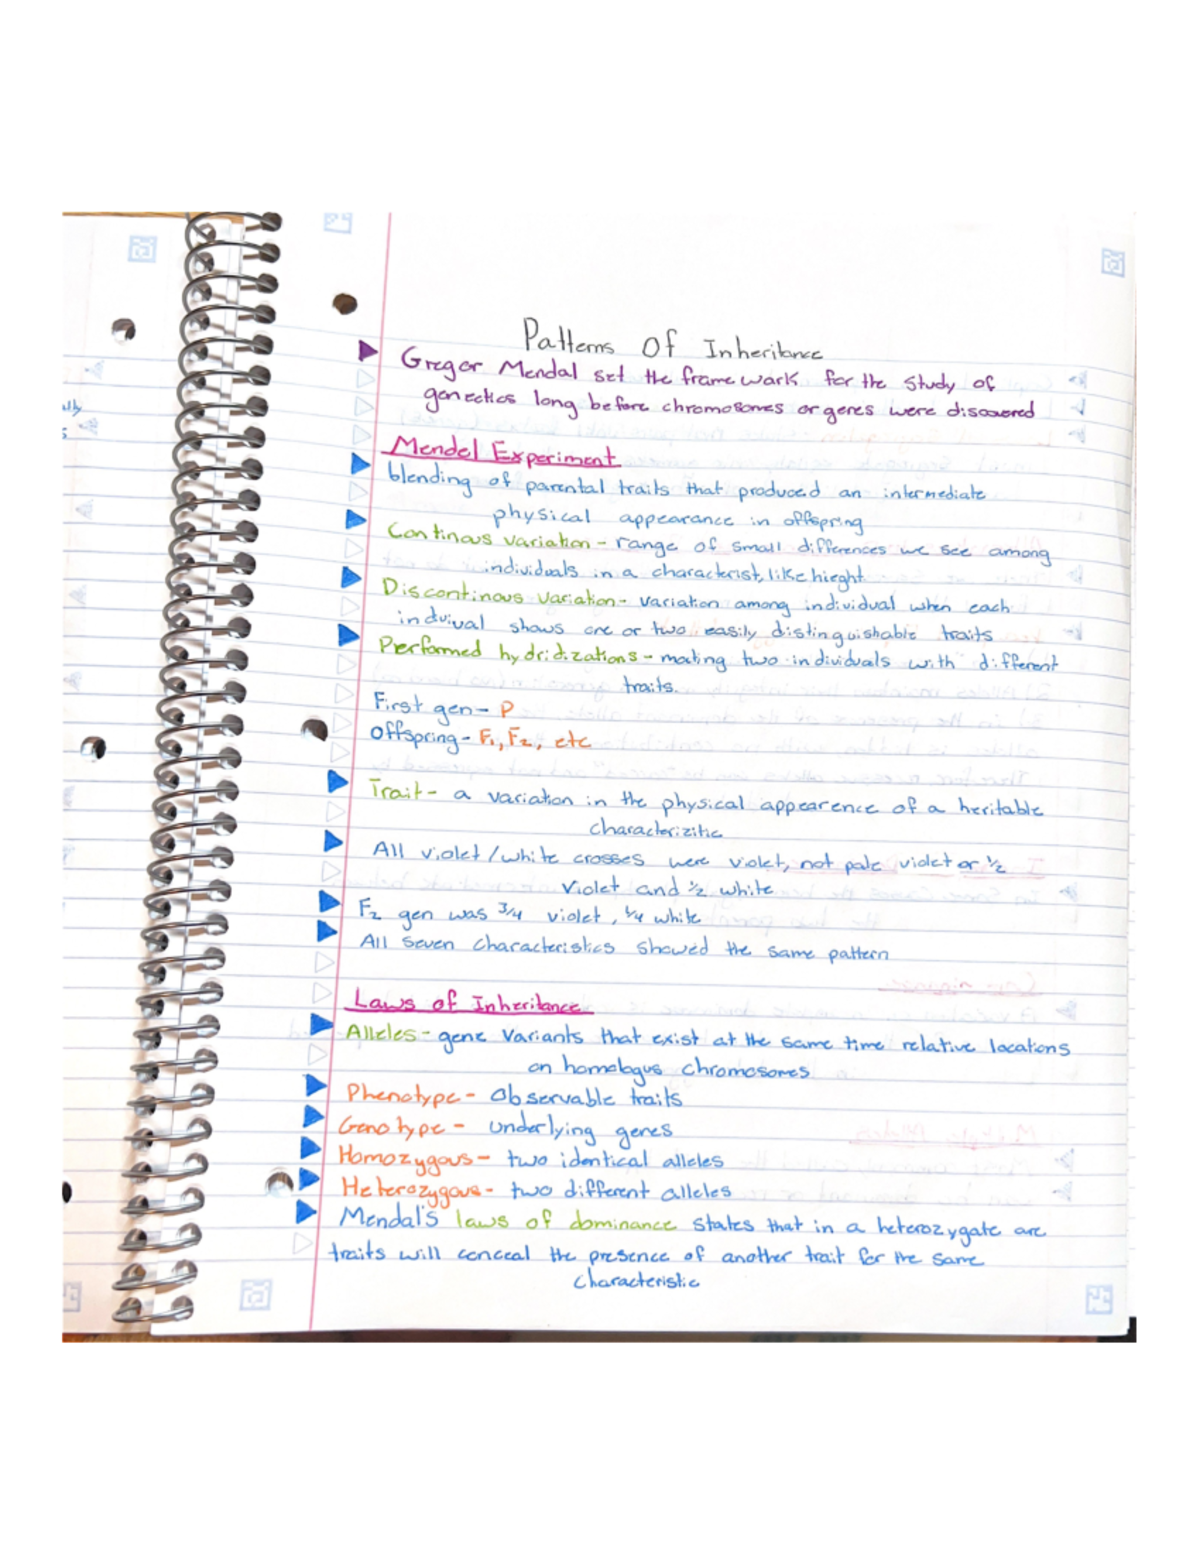 Patterns Of Inheritance
Gregor Mendal set the frame wark for the study of
genectics long before chromosomes or genes were discovered
Mendel Experiment
blending of parental traits that produced an intermediate
physical appearance in offspring
Continous variation - range of small differences we see among
individuals in a characterist, like hieght
Discontinous variation - variation among individual when each
induival shows one or two easily distinguishable traits
Performed hydridizations - mating two individuals with different
traits.
First gen - P
Offspring - F₁, F₂, etc
Trait - a variation in the physical appearence of a heritable
characterizitic
All violet/white crosses were violet, not pale violet or ½
violet and ½ white
F₂ gen was ¾ violet, ¼ white
All seven characteristics showed the same pattern
Laws of Inheritance
Alleles - gene variants that exist at the same time relative locations
on homologus chromosomes
Phenotype - observable traits
Genotype - underlying genes
Homozygous - two identical alleles
Heterozygous - two different alleles
Mendal's laws of dominance states that in a heterozygate are
traits will conceal the presence of another trait for the same
characteristic